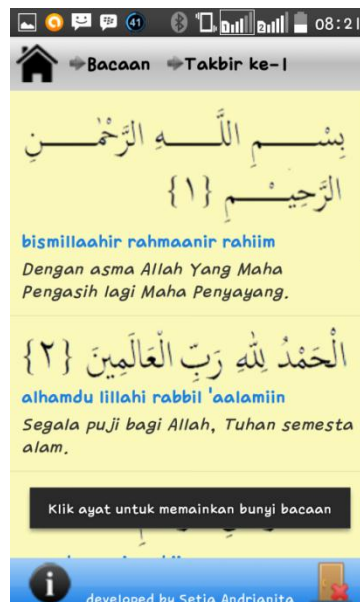 41 08:21
Bacaan Takbir ke-1
بِسْمِ اللَّهِ الرَّحْمَٰنِ
الرَّحِيمِ {١}
bismillaahir rahmaanir rahiim
Dengan asma Allah Yang Maha
Pengasih lagi Maha Penyayang.
الْحَمْدُ لِلَّهِ رَبِّ الْعَالَمِينَ {٢}
alhamdu lillahi rabbil 'aalamiin
Segala puji bagi Allah, Tuhan semesta
alam.
Klik ayat untuk memainkan bunyi bacaan
developed by Setia Andrianita